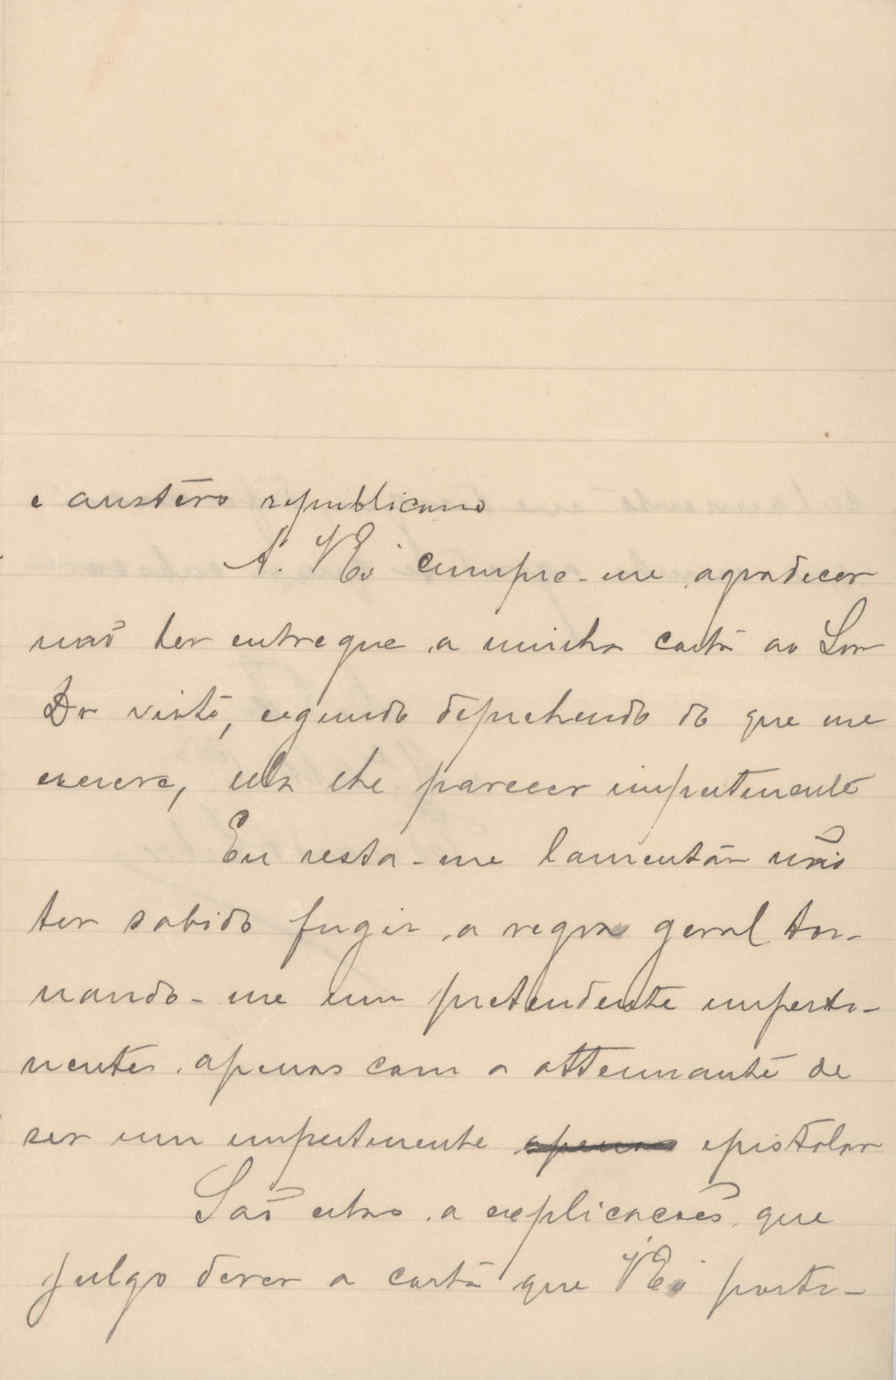 e austéro republicano
A. V Ex.ª cumpre-me agradecer
não ter entregue a minha carta ao Snr
Dr visto, segundo deprehendo do que me
escreve, ella lhe parecer impertinente
Eu resta-me lamentar não
ter sabido fugir a regra geral tor-
nando-me um pretendente imperte-
nente apenas com a attenuante de
ser um impertinente apenas epistolar
São estas a explicacoes que
julgo dever a carta que V Ex.ª